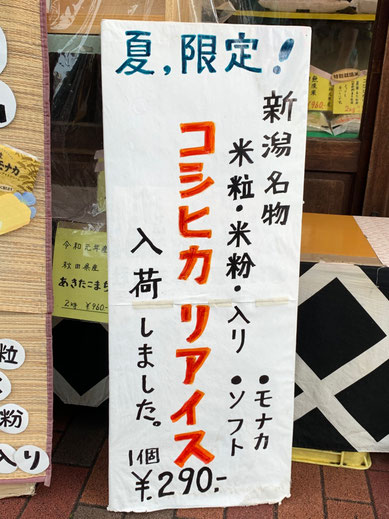 夏,限定!
新潟名物
米粒・米粉・入り
・モナカ
・ソフト
コシヒカリアイス
入荷しました。
1個
¥290.-
令和元年産
秋田県産
あきたこまち
2キロ ¥960
モナカ
粒
粉
入り